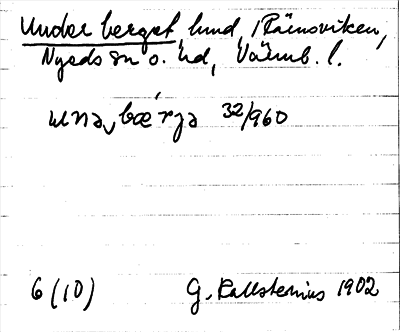 Under berget, hmd, Rämsviken,
Nyeds sn o. hd, Värml. l.
una bærja 32/960
6 (10) G. Kallstenius 1902